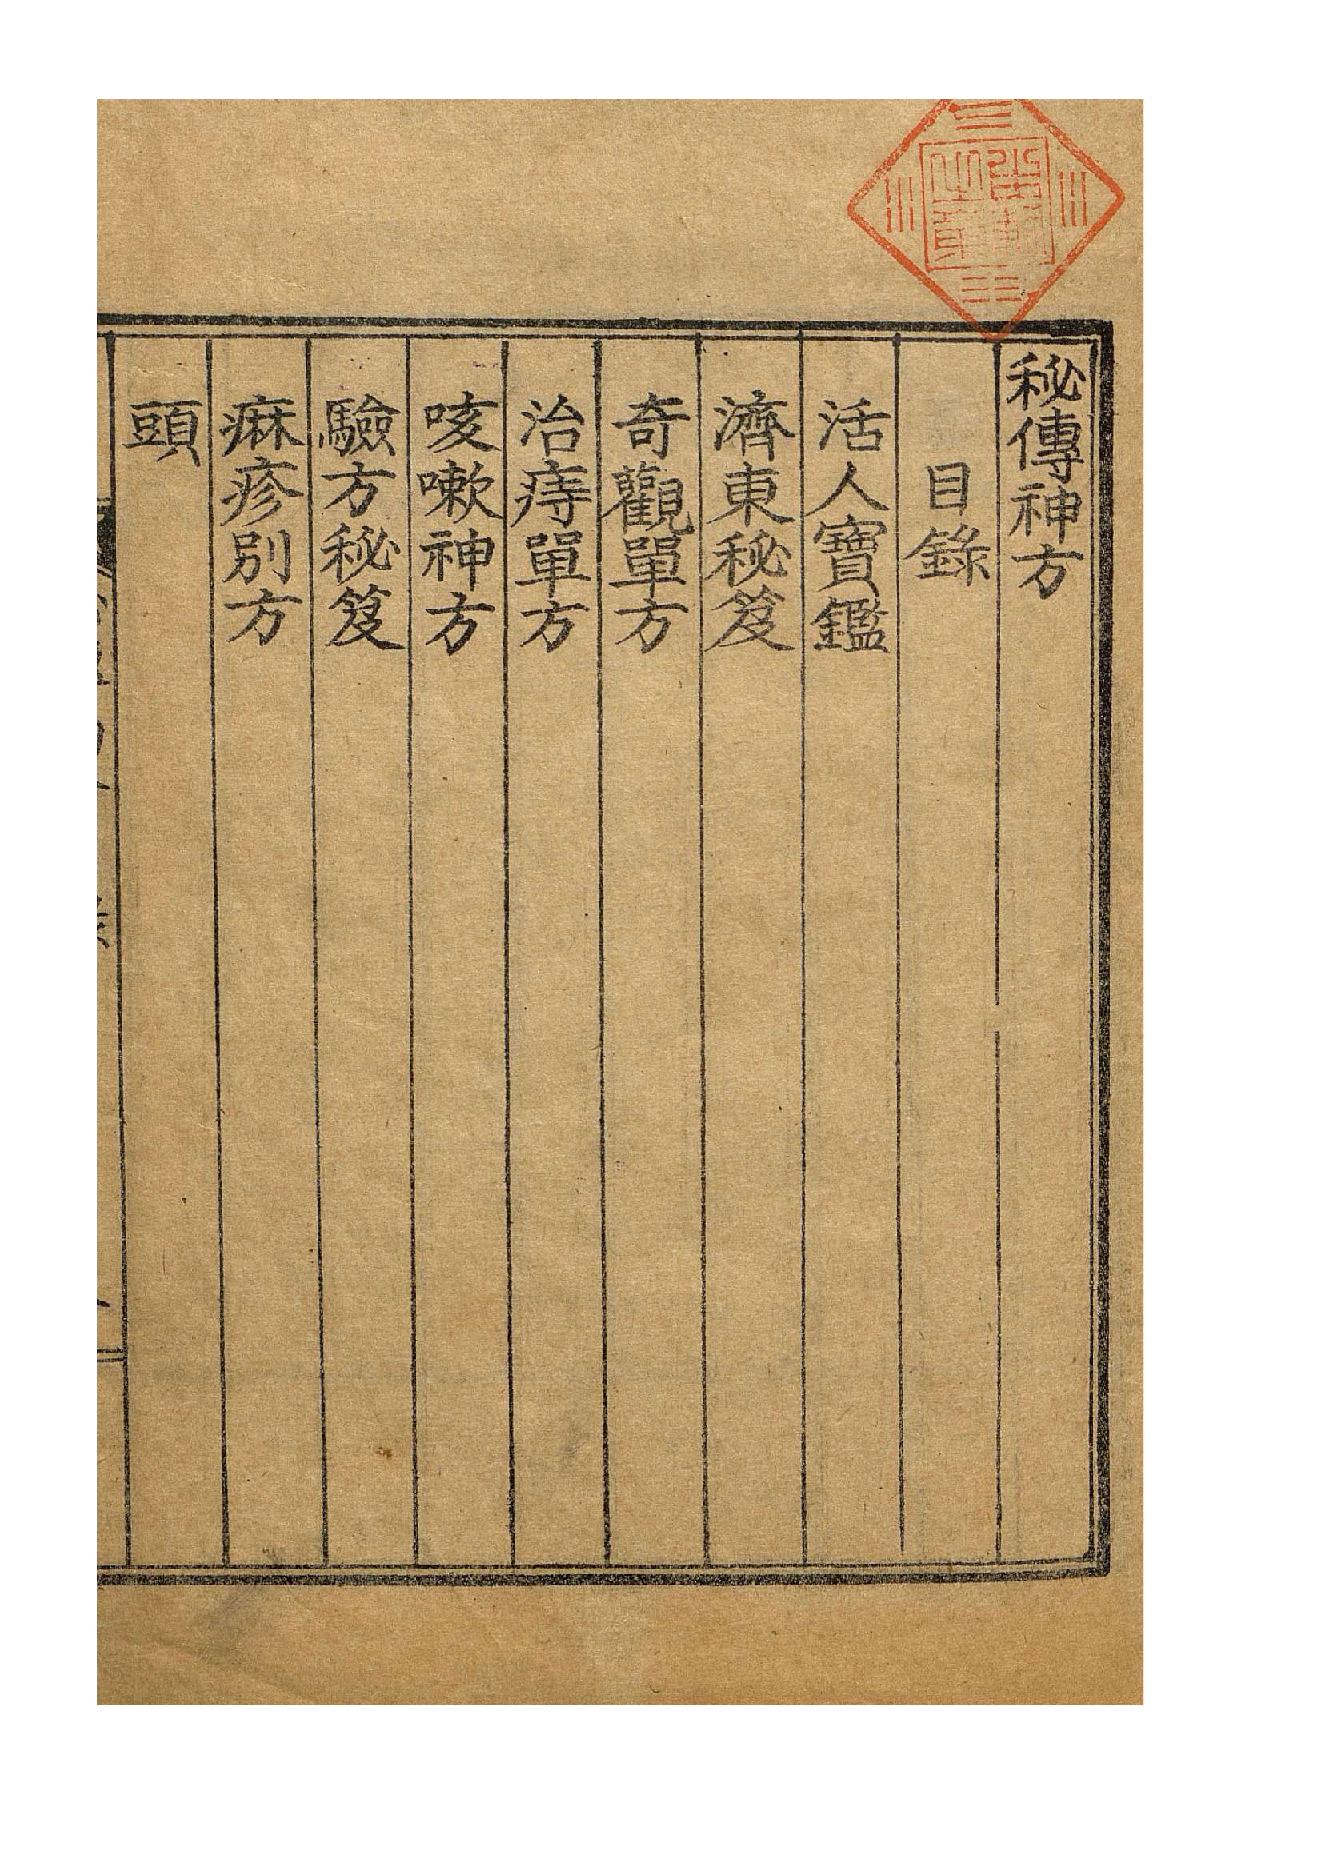 秘傳神方
目錄
活人寶鑑
濟東秘笈
奇觀單方
治痔單方
咳嗽神方
驗方秘笈
痲疹別方
頭